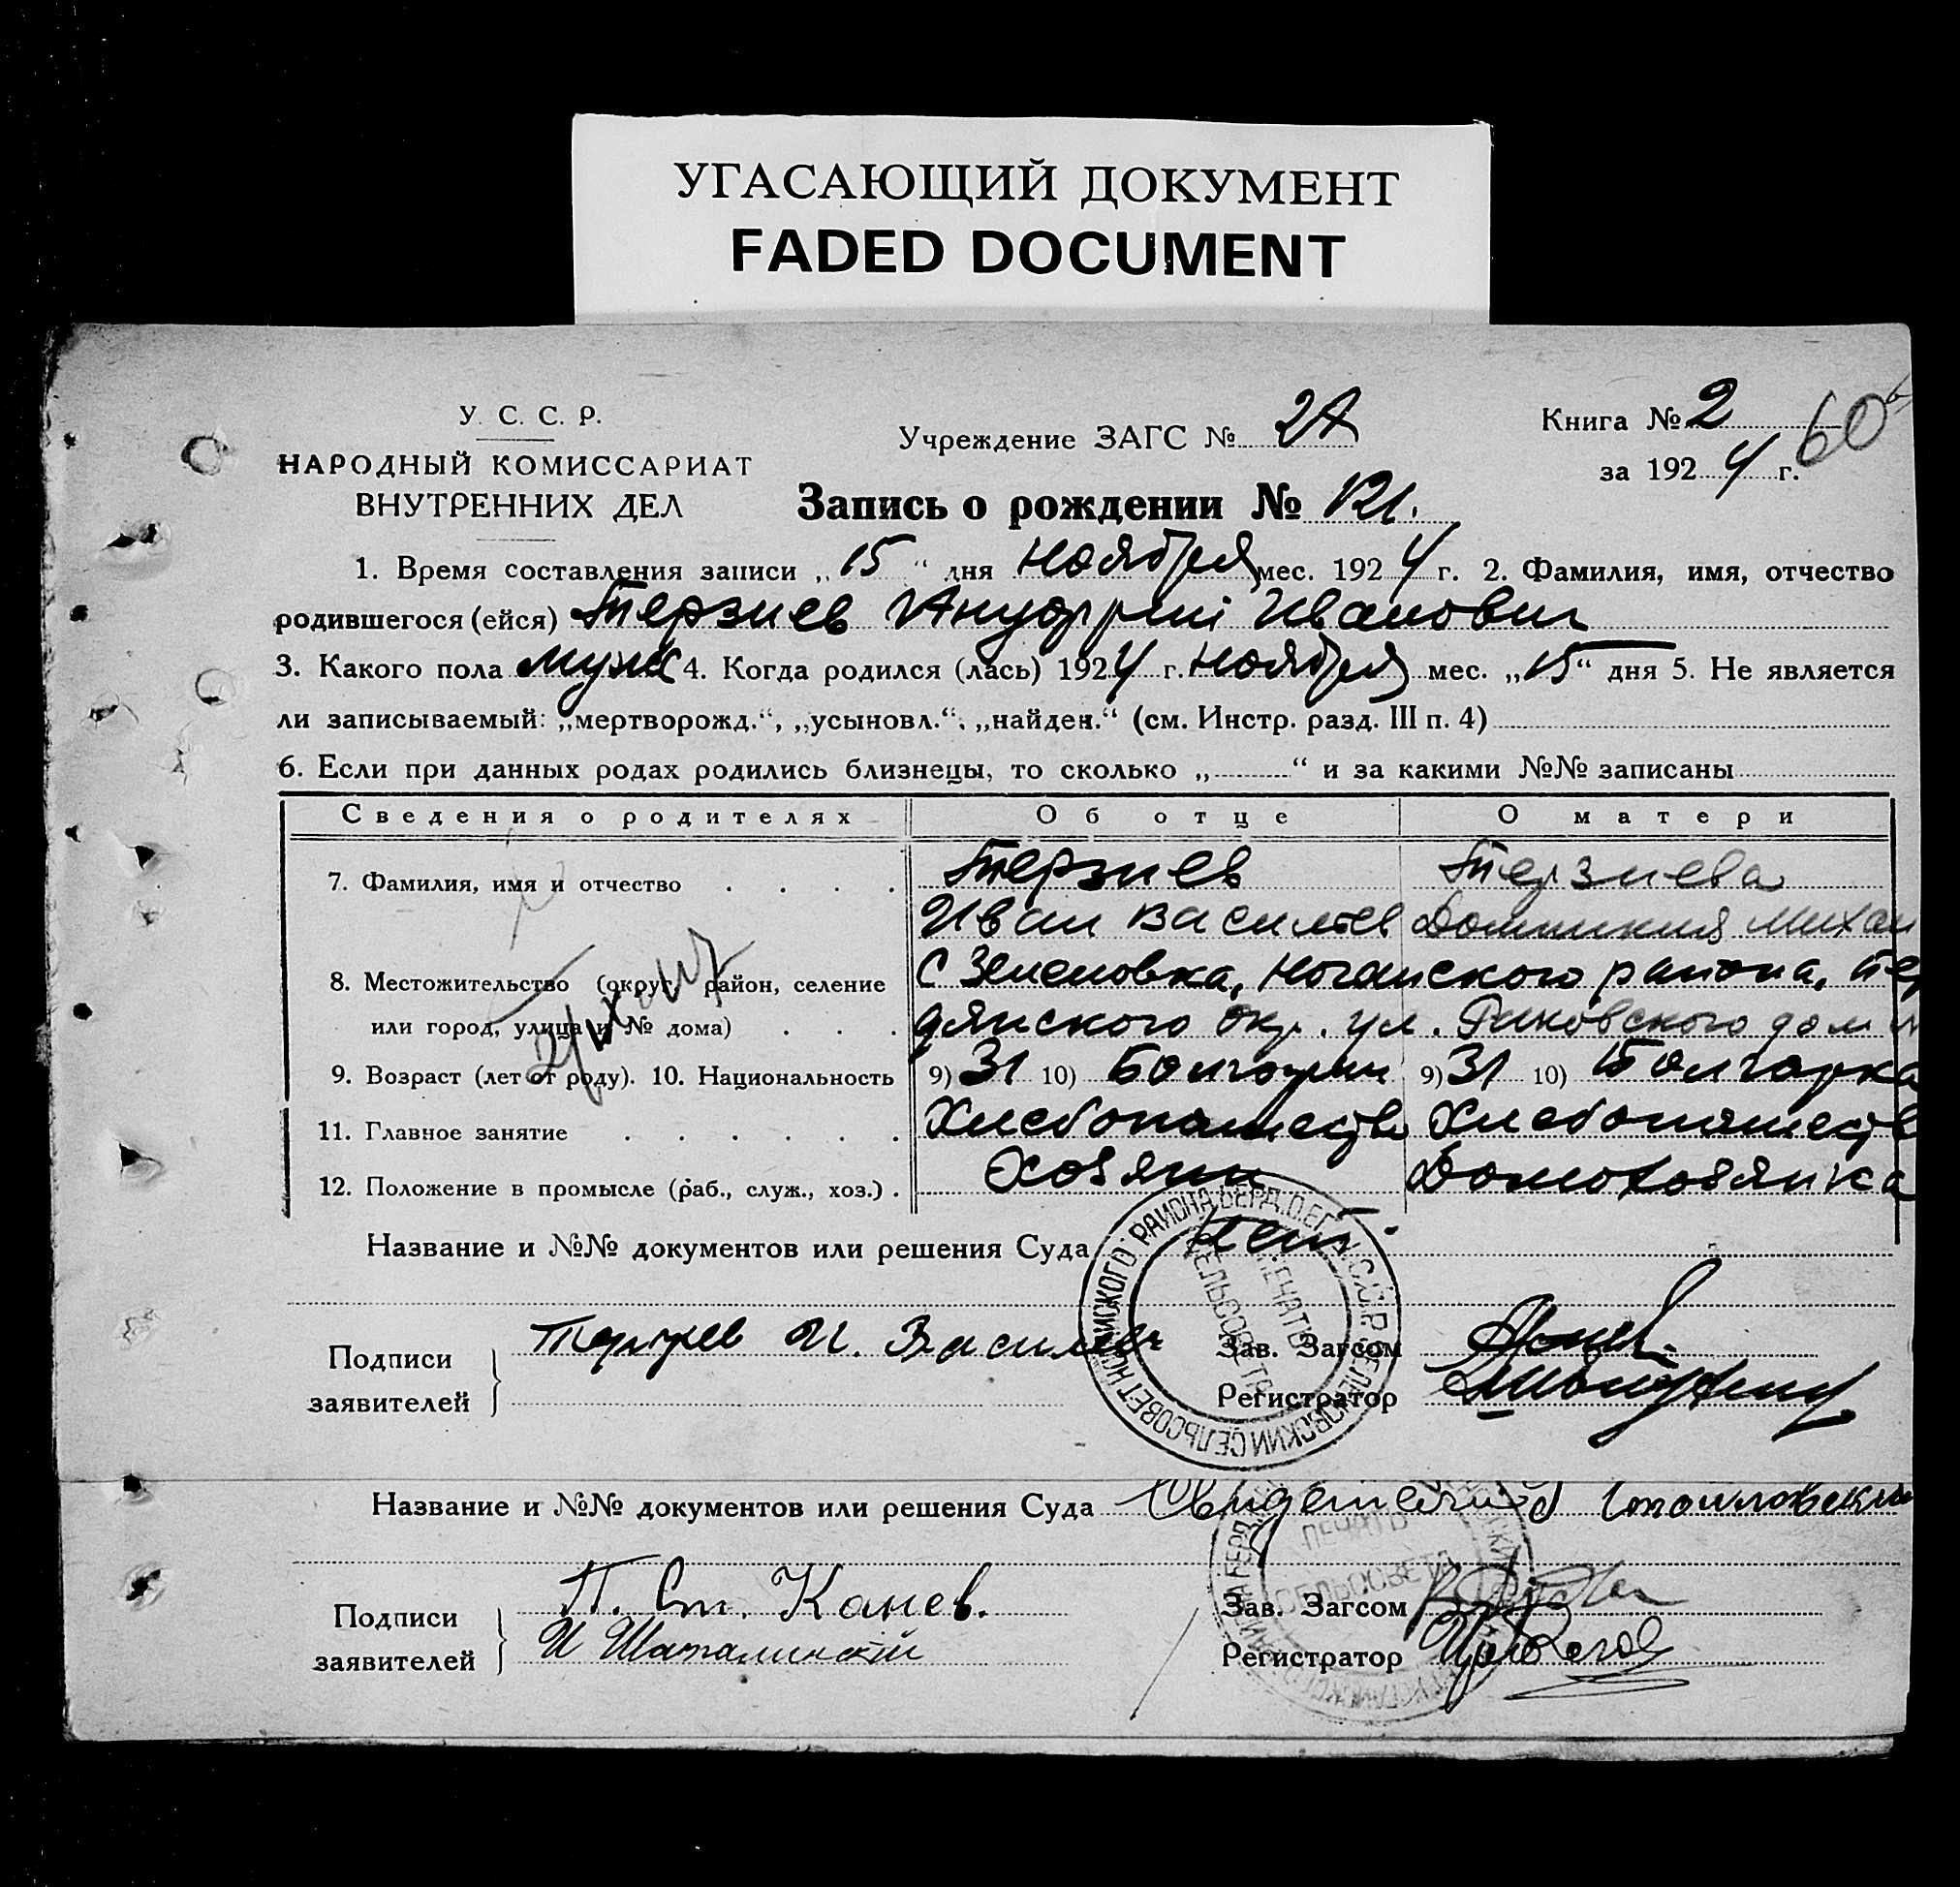 УГАСАЮЩИЙ ДОКУМЕНТ
FADED DOCUMENT
У. С. С. Р.
НАРОДНЫЙ КОМИССАРИАТ
ВНУТРЕННИХ ДЕЛ
Учреждение ЗАГС №
Книга № 2
60
за 1924 г.
Запись о рождении № 121.
1. Время составления записи „15“ дня Ноября мес. 1924 г. 2. Фамилия, имя, отчество
родившегося (ейся) Терзиев Иванович
3. Какого пола муж 4. Когда родился (лась) 1924 г. Ноября мес. „15“ дня 5. Не является
ли записываемый: „мертворожд.“, „усыновл.“, „найден.“ (см. Инстр. разд. III п. 4)
6. Если при данных родах родились близнецы, то сколько „ “ и за какими №№ записаны
Сведения о родителях Об отце О матери
7. Фамилия, имя и отчество Терзиев Терзиева
Иван Васильев Домникия Михаи
8. Местожительство (округ, район, селение С Зеленовка, Ногайского района, Бер
или город, улица и № дома) дянского Окр. ул. Раковского дом №
9. Возраст (лет от роду). 10. Национальность 9) 31 10) Болгарин 9) 31 10) Болгарка
11. Главное занятие Хлебопашество Хлебопашеств
12. Положение в промысле (раб., служ., хоз.) Хозяин Домохозяйка
Название и №№ документов или решения Суда нет.
Подписи заявителей Терзиев И. Василев
Зав. Загсом
Регистратор
НОГАЙСКОГО РАЙОНА БЕРД. О. У.С.С.Р. ЗЕЛЕНОВСКИЙ СЕЛЬСОВЕТ
ПЕЧАТЬ
СЕЛЬСОВЕТА
Название и №№ документов или решения Суда
ПЕЧАТЬ
СЕЛЬСОВЕТА
Подписи заявителей П. Ст. Канев.
И Шаталинский
Зав. Загсом
Регистратор